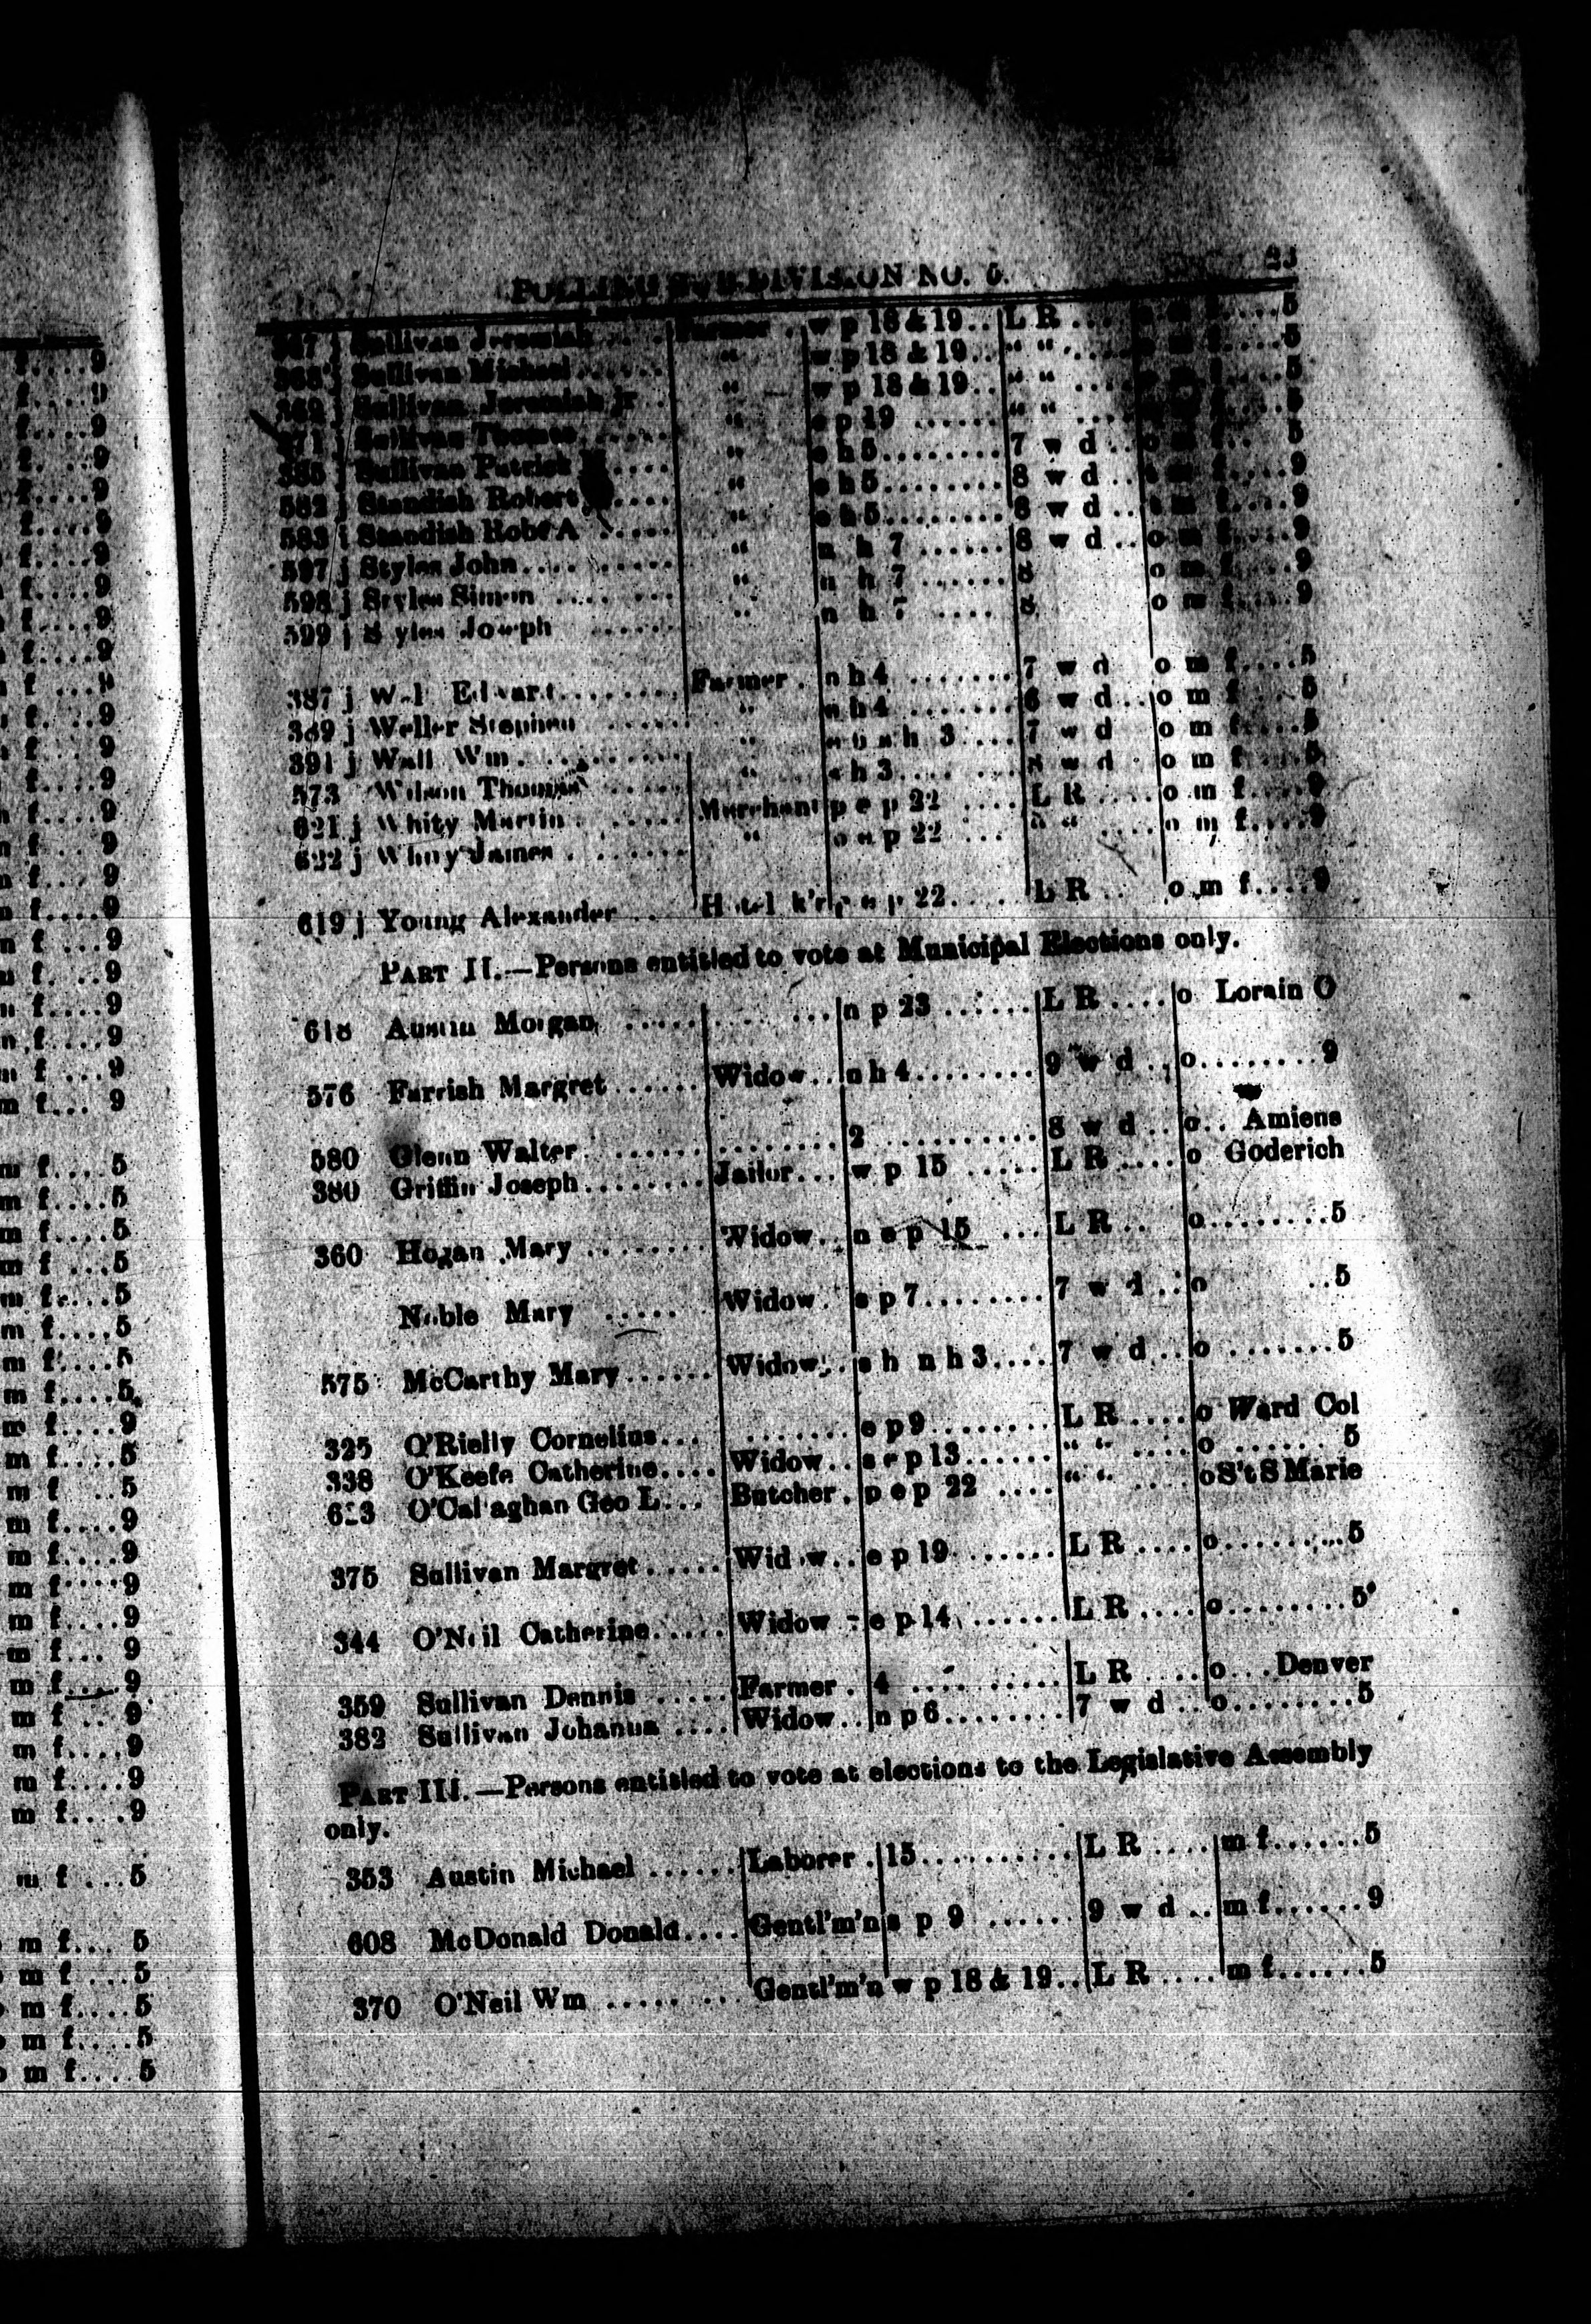 f....9
f....9
f....9
f. ..9
f....9
f....9
f....9
f....9
f....9
f....9
f ...9
f. ..9
f....9
f....9
f....9
f... 9
f....9
f....9
n f ...9
f. ..9
f....9
f....9
f ...9
m f... 9
m f....5
m f....5
m f....5
m f ...5
m f....5
m f....5
m f....5
m f....5
f....9
m f....5
m f ..5
m f....9
m f....9
m f....9
m f....9
m f... 9
m f....9
m f .. 9
m f....9
m f....9
m f....9
m f ...5
m f... 5
m f ...5
m f....5
m f....5
m f....5
POLLING SUB-DIVISION NO. 23
j Sullivan Jeremiah.... Farmer .. w p 18 & 19.. L R .... 5
j Sullivan Michael...... “ w p 18 & 19.. “ “ .... 5
j Sullivan Jeremiah jr .. “ w p 18 & 19.. “ “ .... 5
j Sullivan Thomas ...... “ e p 19 ...... “ “ .... 5
385 j Sullivan Patrick .... “ e h 5........ 7 w d .. o m f... 5
582 j Standish Robert .... “ e h 5........ 8 w d .. m f....9
583 Standish Robt A ..... “ e h 5........ 8 w d .. m f....9
597 j Styles John.... ...... “ n h 7 ...... 8 w d .. o m f....9
598 j Styles Simon .... ... “ n h 7 ...... 8 o m f....9
599 j S yles Joseph ...... “ n h 7 .... 8 o m f....9
387 j Edwar ........ Farmer . n h 4 ....... 7 w d o m f....5
389 j Weller Stephen ...... “ n h 4 ....... 6 w d.. o m f 5
391 j Wall Wm. ......... “ h 3.... 7 w d o m f....5
573 Wilson Thomas ..... “ e h 3.... ... w d o m f....5
621 j Whity Martin ...... Merchant p e p 22 .... L R .... o m f....9
622 j Whity James ........ “ p 22 ... “ “ .... o m f....9
619 j Young Alexander .... H tel k'r p 22.... L R .. o m f....9
PART II.—Persons entitled to vote at Municipal Elections only.
618 Austin Morgan ..... .... ... n p 23 ...... L R .... o Lorain O
576 Farrish Margret ...... Widow.. n h 4........ 9 w d .. o........9
580 Glenn Walter. ....... ........ 2 ........... 8 w d .. o.. Amiens
380 Griffin Joseph........ Jailor... w p 15 ..... L R .... o Goderich
360 Hogan Mary ........ Widow.. n e p 15 ... L R .. o........5
Noble Mary ..... Widow. e p 7........ 7 w d .. o ..5
575 McCarthy Mary...... Widow.. e h n h 3.... 7 w d .. o .......5
325 O'Rielly Cornelius... ....... e p 9........ L R .... o Ward Col
338 O'Keefe Catherine.... Widow.. p 13...... “ “ .... o ...... 5
O'Cal aghan Geo L... Butcher . p e p 22 .... “ “ .... o S't S Marie
375 Sullivan Margret..... Wid w.. e p 19....... L R .... o.........5
344 O'Neil Catherine..... Widow - e p 14 ...... L R .... o........5
359 Sullivan Dennis ..... Farmer . 4 .......... L R .... o...Denver
382 Sullivan Johanna .... Widow.. n p 6........ 7 w d .. o........5
PART III.—Persons entitled to vote at elections to the Legislative Assembly
only.
353 Austin Michael ...... Laborer . 15.......... L R .... m f......5
608 McDonald Donald.... Gentl'm'n s p 9 ...... 9 w d .. m f......9
370 O'Neil Wm ..... ... Gentl'm'n w p 18 & 19.. L R .... m f......5